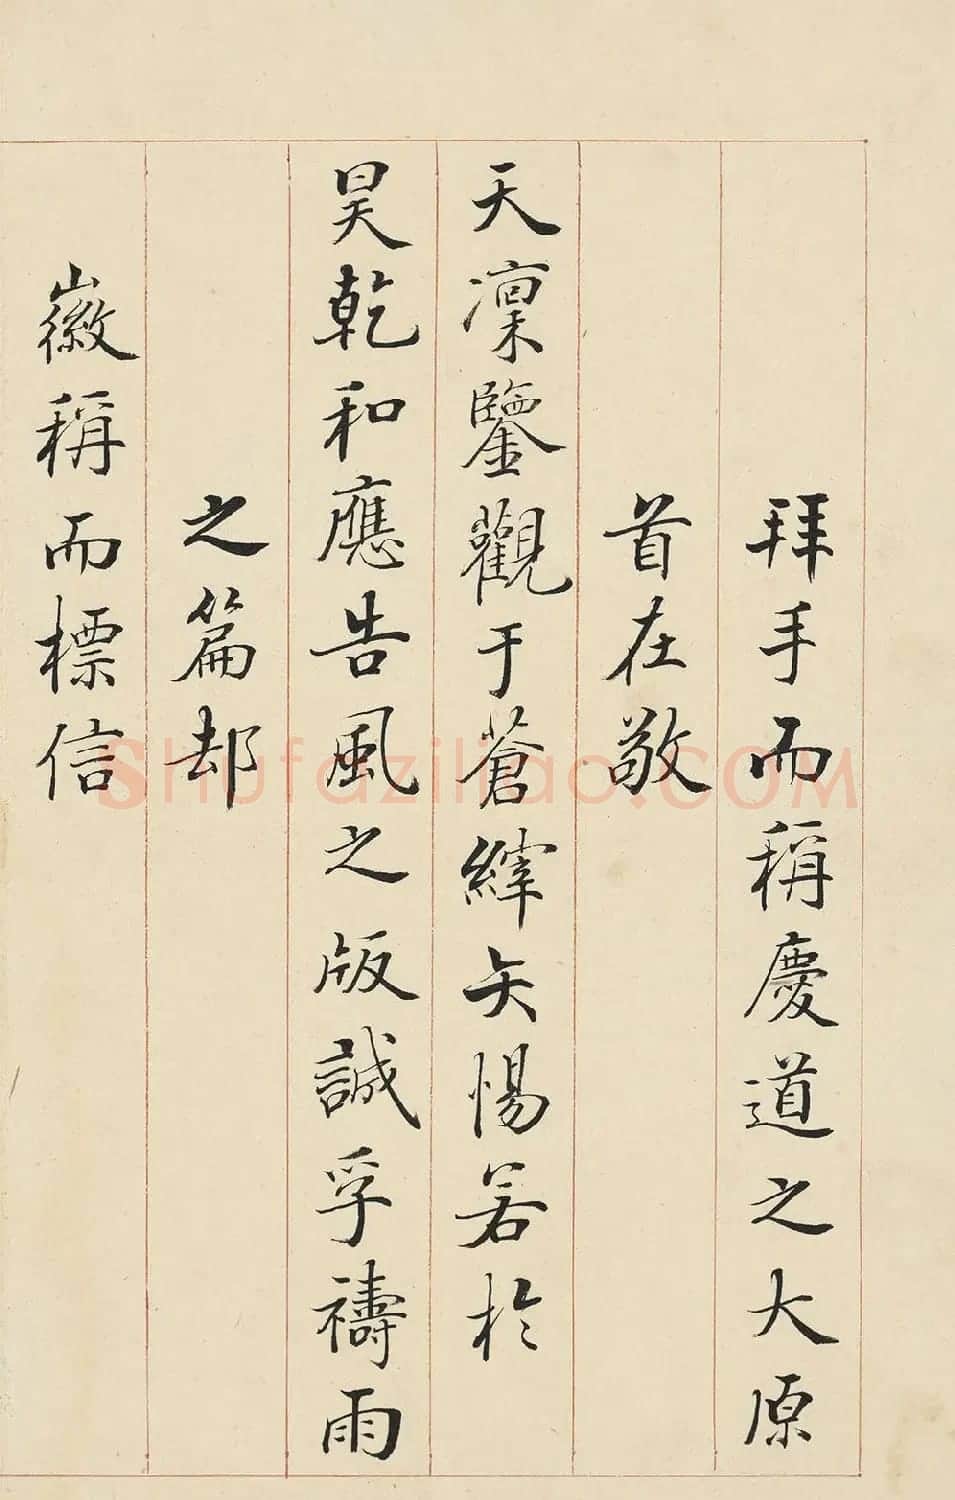 拜手而稱慶道之大原
首在敬
天凜鑒觀于蒼縡矢惕若於
昊乾和應告風之版誠孚禱雨
之篇却
徽稱而標信
Shufaziliao.COM